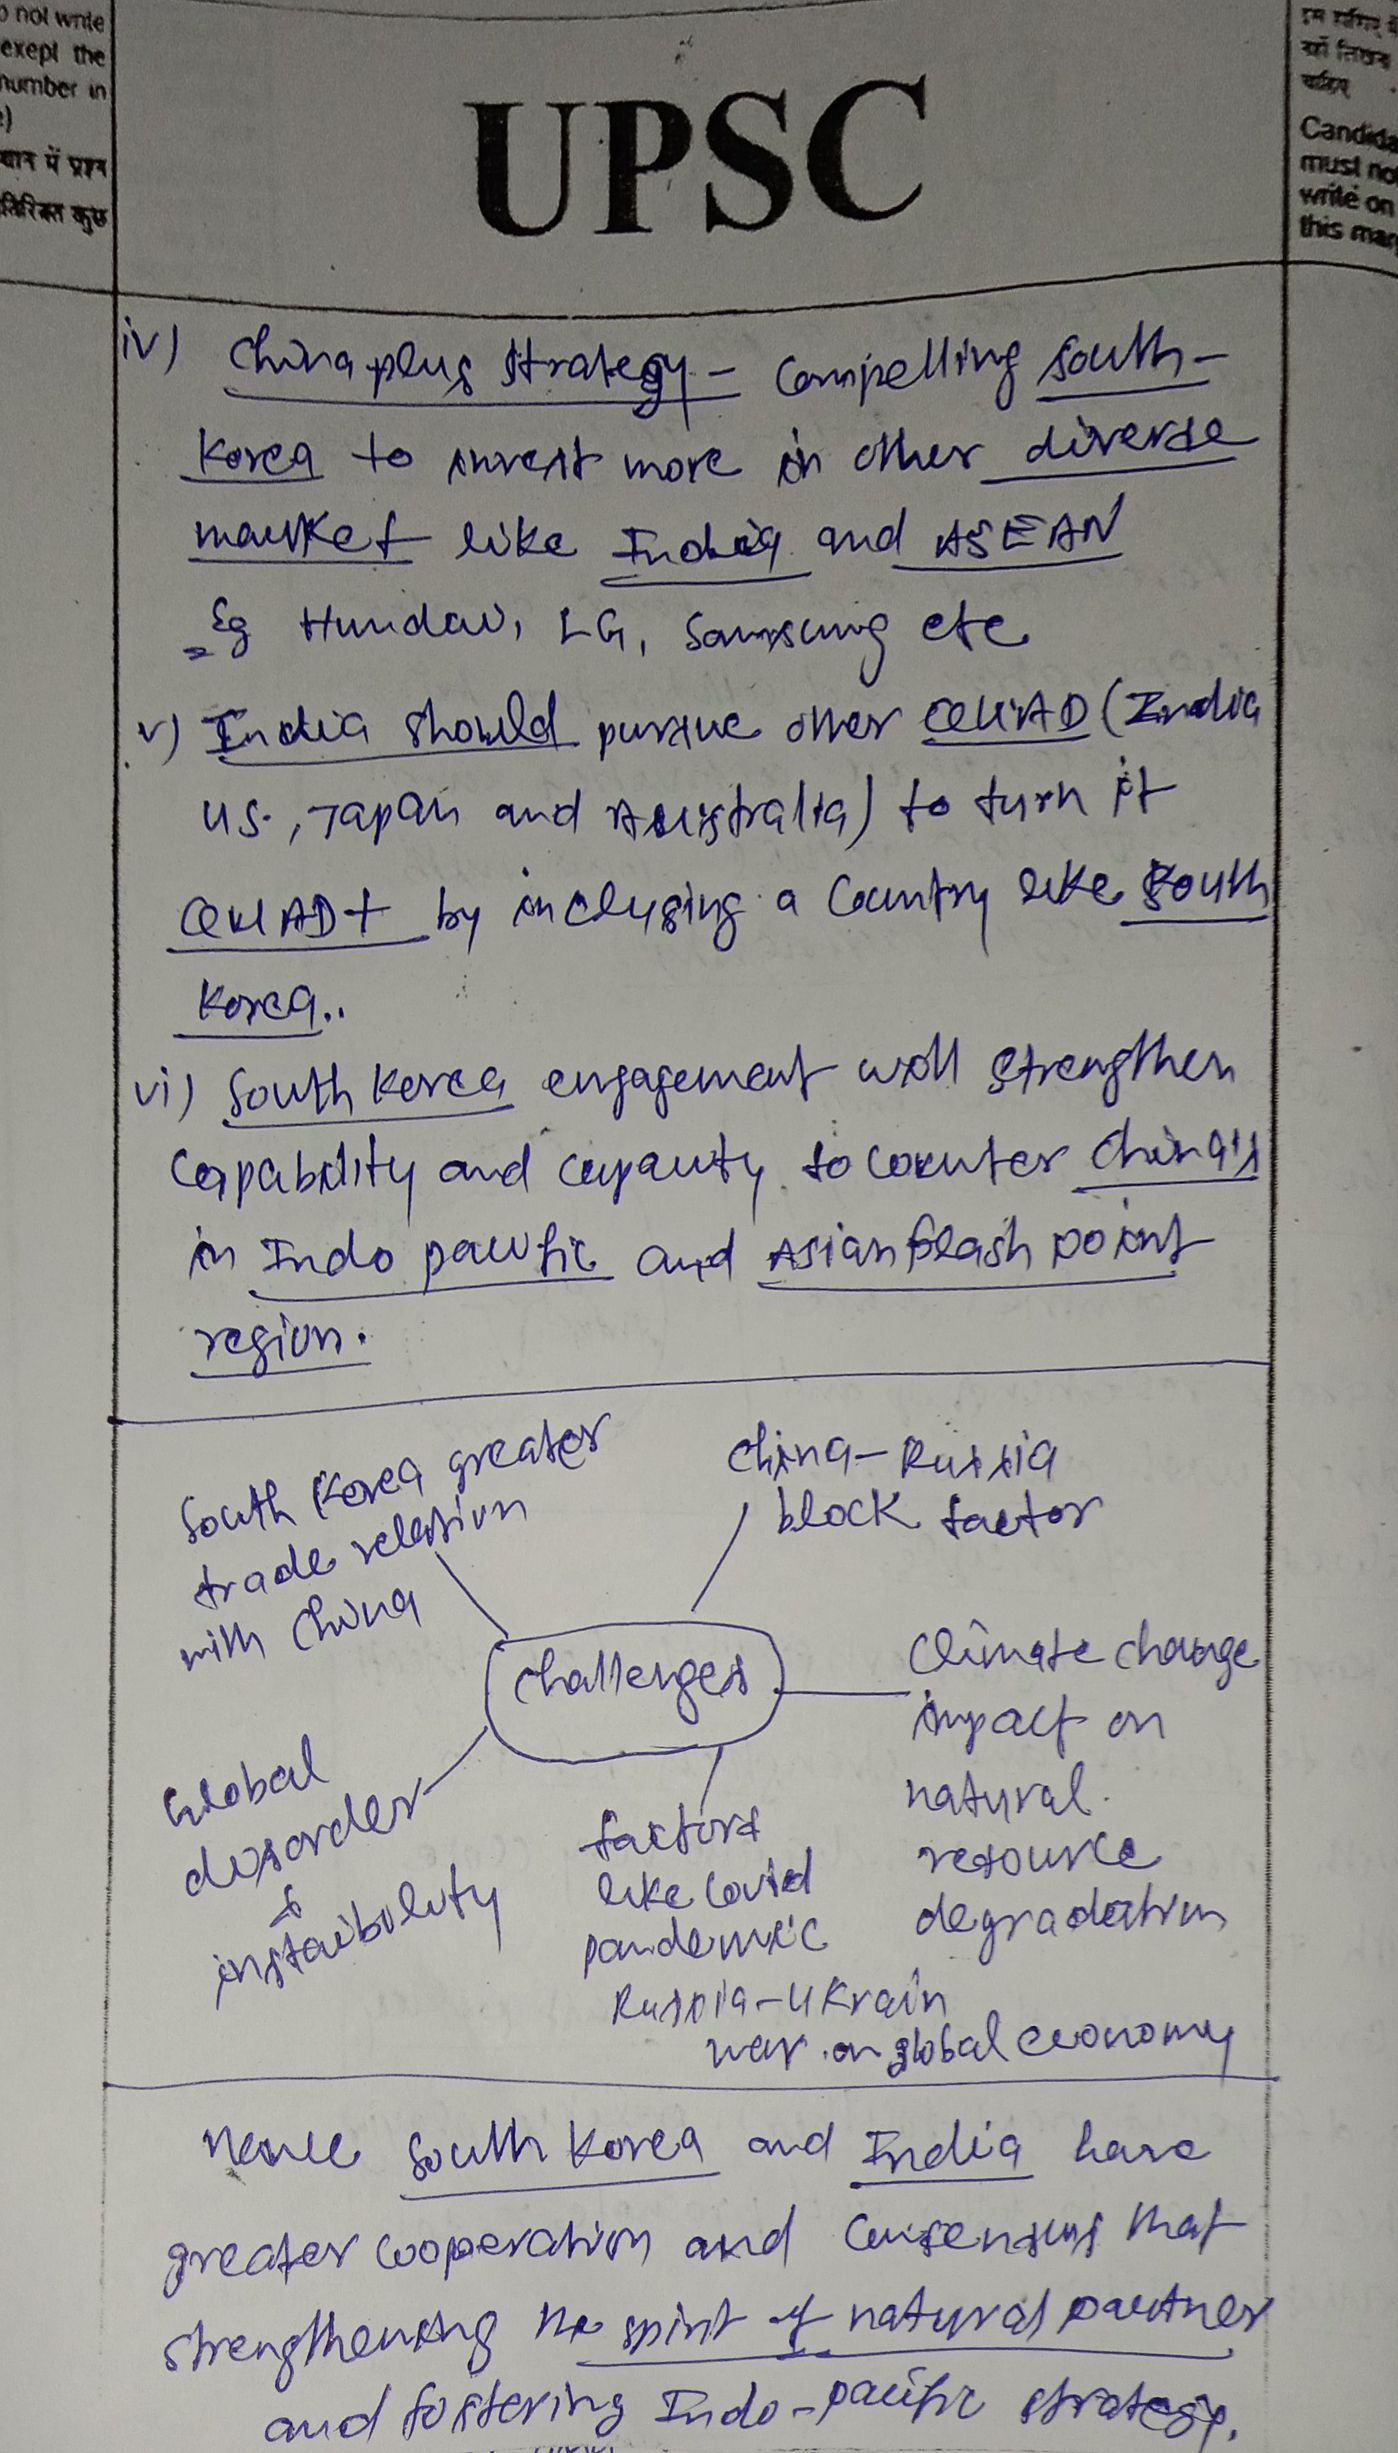 not write
exept the
number in
में प्रश्न
कुछ
UPSC
Candida
must not
write on
this mar
iv) China plus strategy - compelling South-
Korea to invest more in other diverse
market like India and ASEAN
Eg Hundai, LG, Samsung etc
v) India should pursue other QUAD (India
US., Japan and Australia) to turn it
QUAD+ by inclusing a country like South
Korea..
vi) South Korea engagement will strengthen
capability and capauty to counter China's
in Indo pacific and Asian flash point
region.
South Korea greater
trade relation
with China
China-Russia
block factor
Challenges
Climate change
impact on
natural
resource
degradation
Global
disorder
+
instaibility
factors
like Covid
pandemic
Russia-Ukrain
war on global economy
Hence South Korea and India have
greater cooperation and consensus that
strengthening the spirit of natural partner
and fostering Indo-pacific strategy.